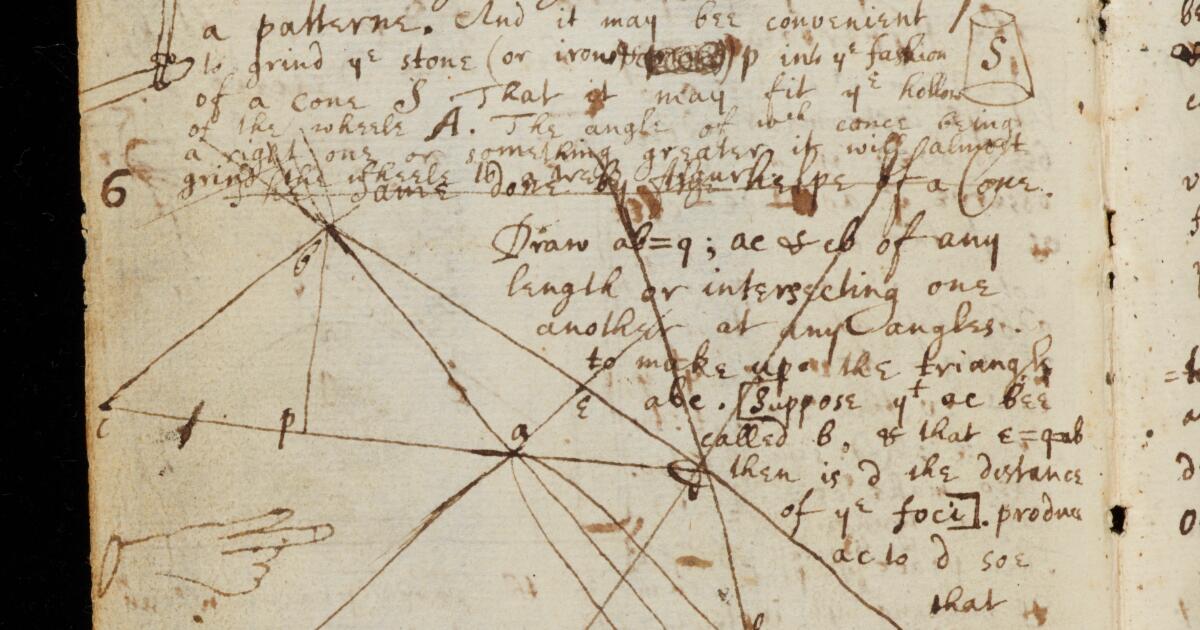 a patterne. And it may bee convenient
to grind ye stone (or iron) p into ye fashion
of a cone S. That it may fit ye hollow
of the wheele A. The angle of wch cone being
a right one or something greater it will almost
grind the wheele
S
6 The same done by helpe of a Cone.
Draw ab=q; ac & cb of any
length or intersecting one
another at any angles.
to make up the triangle
abc. [Suppose yt ac bee
called b, & that e=q=ab
then is d the distance
of ye foci]. produce
ac to d soe
that
b
c
p
a
e
d